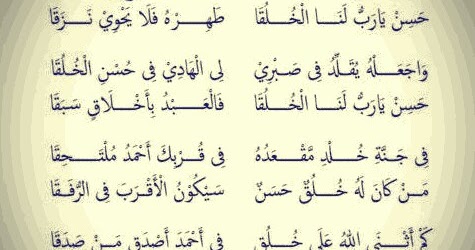 حَسِنْ يَارَبُّ لَنَا الْخُلُقَا طَهِرْهُ فَلَا يَحْوِيْ نَزَقَا
وَاجَعَلْهُ يُقَلِّدُ فِى صَبْرِيْ لِى الْهَادِيْ فِى حُسْنِ الْخُلُقَا
حَسِنْ يَارَبُّ لَنَا الْخُلُقَا فَالْعَبْدُ بِأَخْلَاقٍ سَبَقَا
فِى جَنَّةِ خُلْدٍ مَّقْعَدُهُ فِى قُرْبِكَ أَحْمَدُ مُلْتَحِقَا
مَنْ كَانَ لَهُ خُلُقٌ حَسَنٌ سَيَكُوْنُ الْأَقْرَبَ فِى الرُّفَقَا
كَمْ أَثْنَى اللهُ عَلَى خُلُقٍ فِى أَحْمَدَ أَصْدَقِ مَنْ صَدَقَا